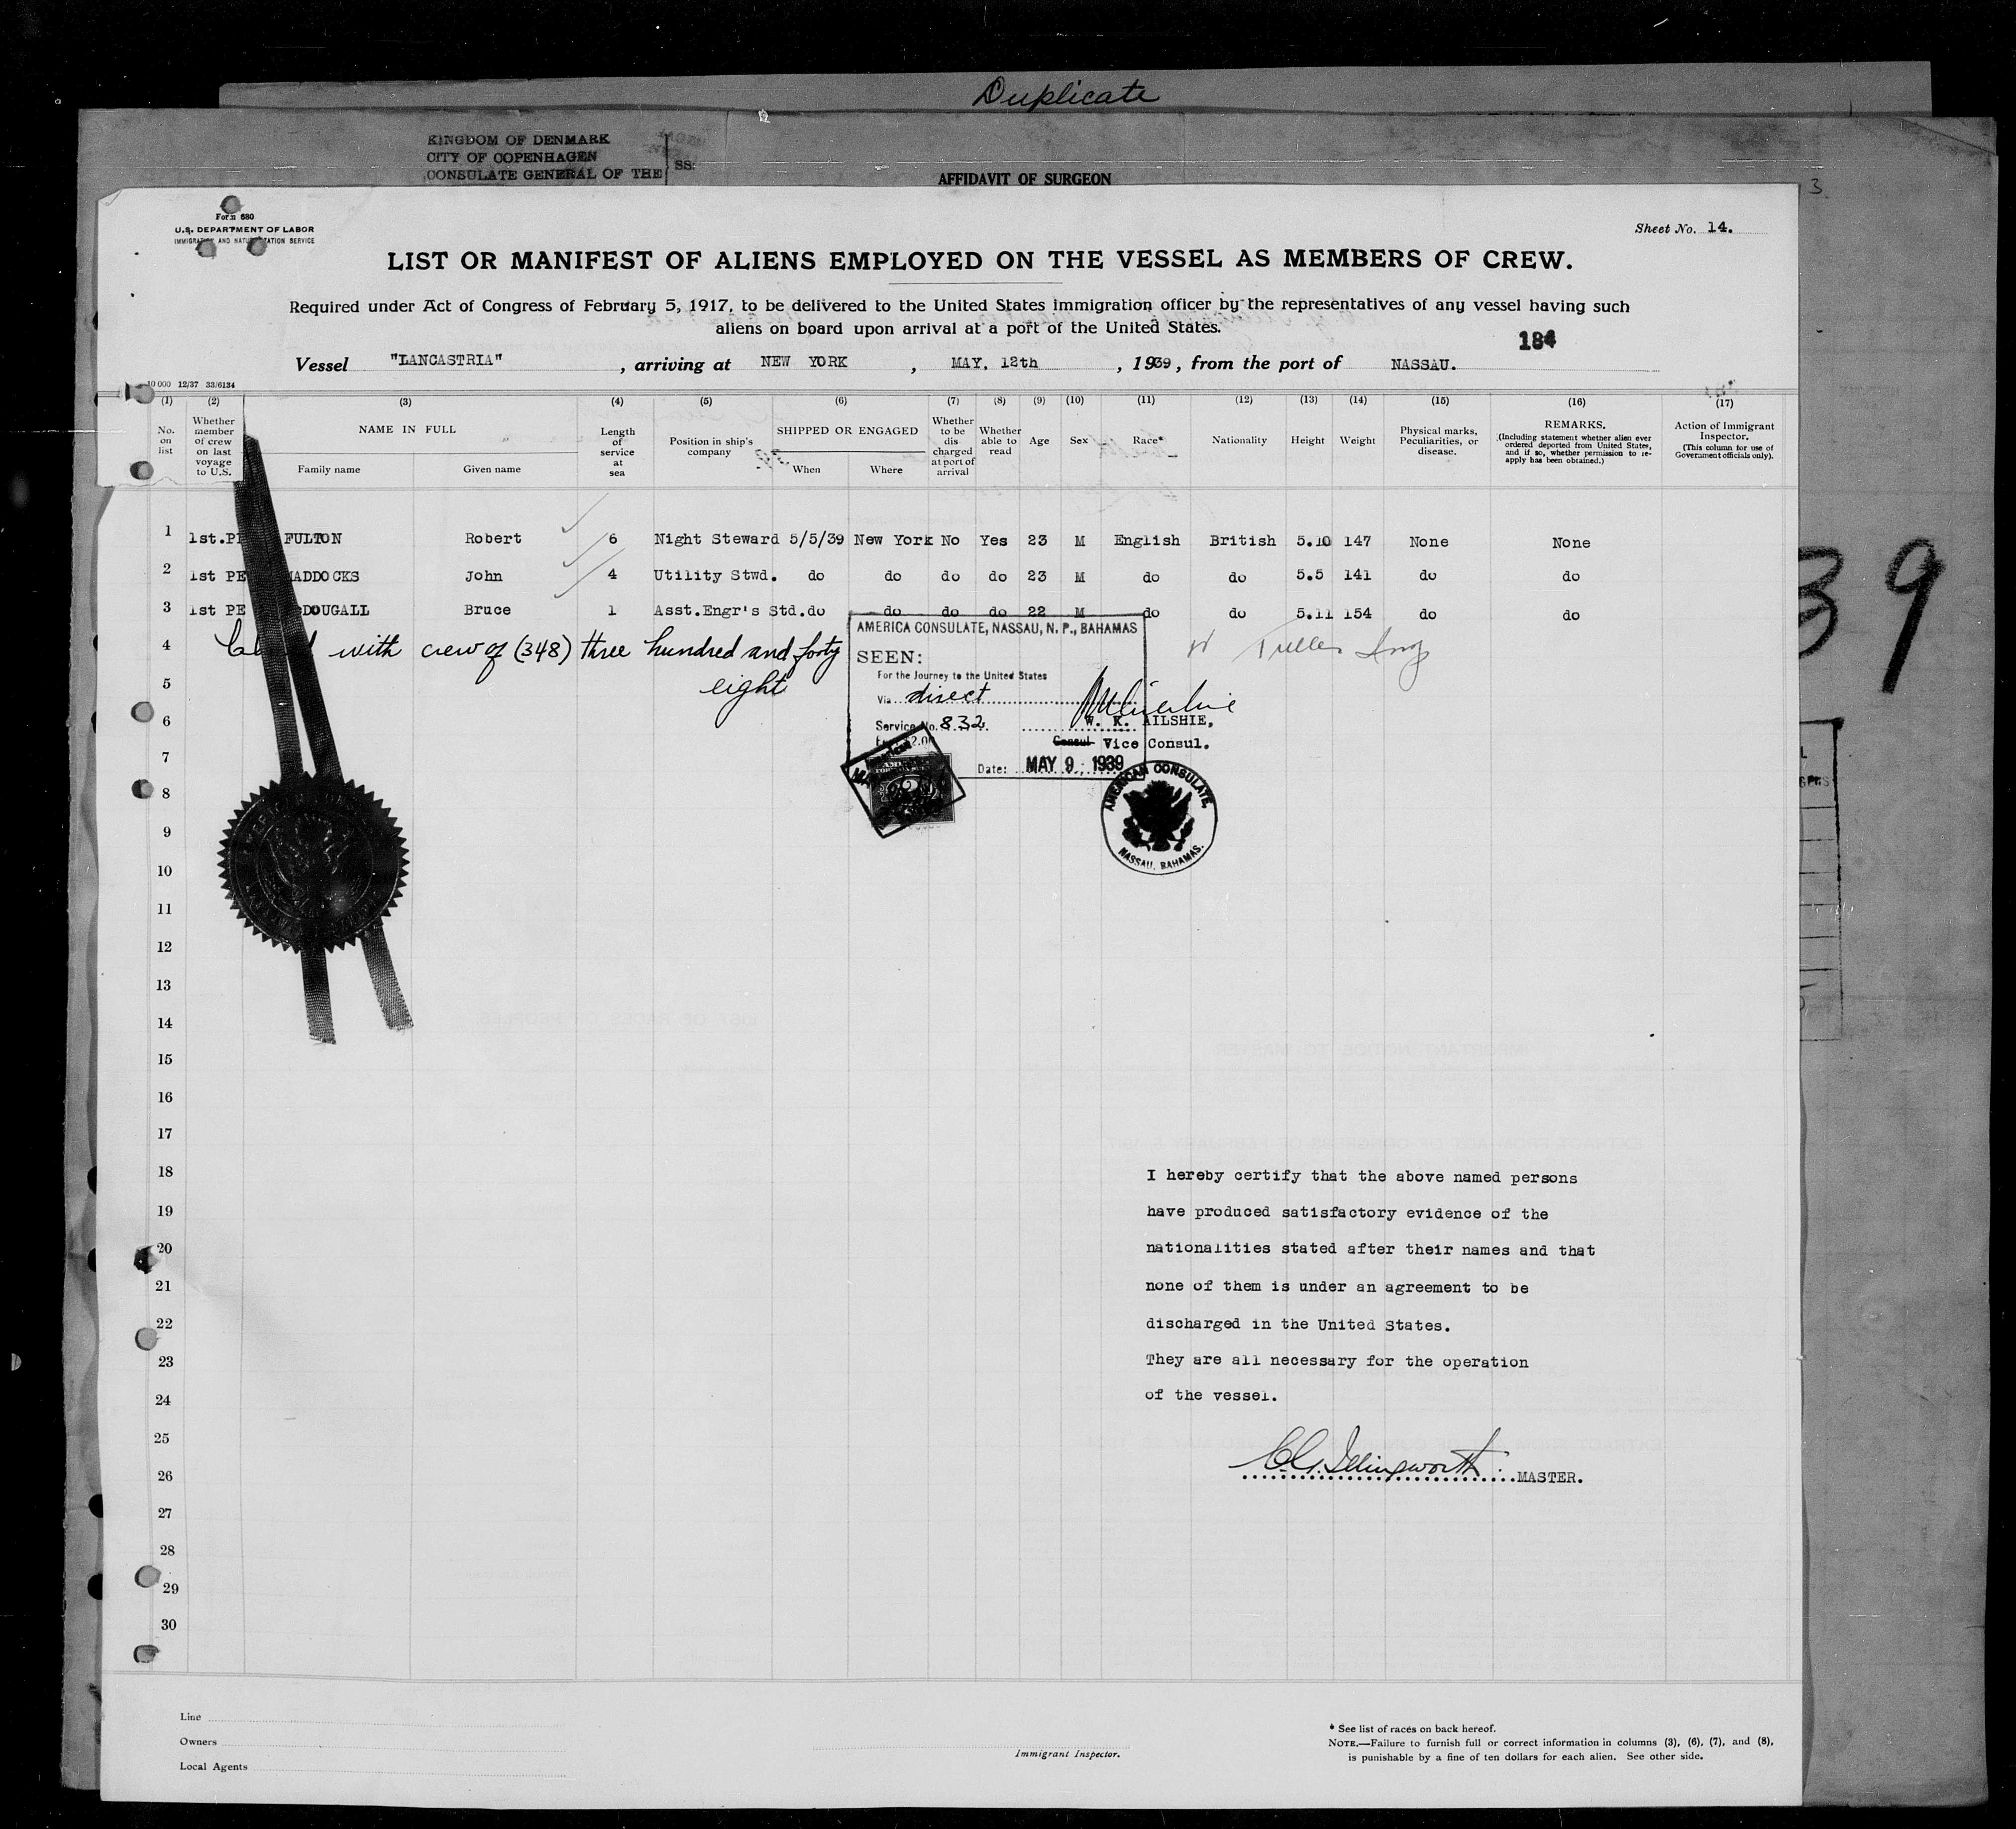 Duplicate
KINGDOM OF DENMARK
CITY OF COPENHAGEN
CONSULATE GENERAL OF THE
SS:
AFFIDAVIT OF SURGEON
3
Form 680
U.S. DEPARTMENT OF LABOR
IMMIGRATION AND NATURALIZATION SERVICE
Sheet No. 14.
LIST OR MANIFEST OF ALIENS EMPLOYED ON THE VESSEL AS MEMBERS OF CREW.
Required under Act of Congress of February 5, 1917, to be delivered to the United States immigration officer by the representatives of any vessel having such
aliens on board upon arrival at a port of the United States.
184
Vessel "LANCASTRIA", arriving at NEW YORK, MAY, 12th, 1939, from the port of NASSAU.
10 000 12/37 33/6134
(1) (2) (3) (4) (5) (6) (7) (8) (9) (10) (11) (12) (13) (14) (15) (16) (17)
No. on list
Whether member of crew on last voyage to U.S.
NAME IN FULL
Family name
Given name
Length of service at sea
Position in ship's company
SHIPPED OR ENGAGED
When
Where
Whether to be discharged at port of arrival
Whether able to read
Age
Sex
Race*
Nationality
Height
Weight
Physical marks, Peculiarities, or disease.
REMARKS.
(Including statement whether alien ever ordered deported from United States, and if so, whether permission to re-apply has been obtained.)
Action of Immigrant Inspector.
(This column for use of Government officials only).
1 1st.PE FULTON Robert 6 Night Steward 5/5/39 New York No Yes 23 M English British 5.10 147 None None
2 1st PE MADDOCKS John 4 Utility Stwd. do do do do 23 M do do 5.5 141 do do
3 1st PE DOUGALL Bruce 1 Asst.Engr's Std.do do do do 22 M do do 5.11 154 do do
4 with crew of (348) three hundred and forty
5 eight
AMERICA CONSULATE, NASSAU, N. P., BAHAMAS
SEEN:
For the Journey to the United States
Via direct
Service No. 832
W. K. AILSHIE,
Consul Vice Consul.
Date: MAY 9, 1939
AMERICAN CONSULATE,
NASSAU, BAHAMAS.
39
6
7
8
9
10
11
12
13
14
15
16
17
18 I hereby certify that the above named persons
19 have produced satisfactory evidence of the
20 nationalities stated after their names and that
21 none of them is under an agreement to be
22 discharged in the United States.
23 They are all necessary for the operation
24 of the vessel.
25
26 MASTER.
27
28
29
30
Line
Owners
Local Agents
Immigrant Inspector.
* See list of races on back hereof.
NOTE.—Failure to furnish full or correct information in columns (3), (6), (7), and (8),
is punishable by a fine of ten dollars for each alien. See other side.